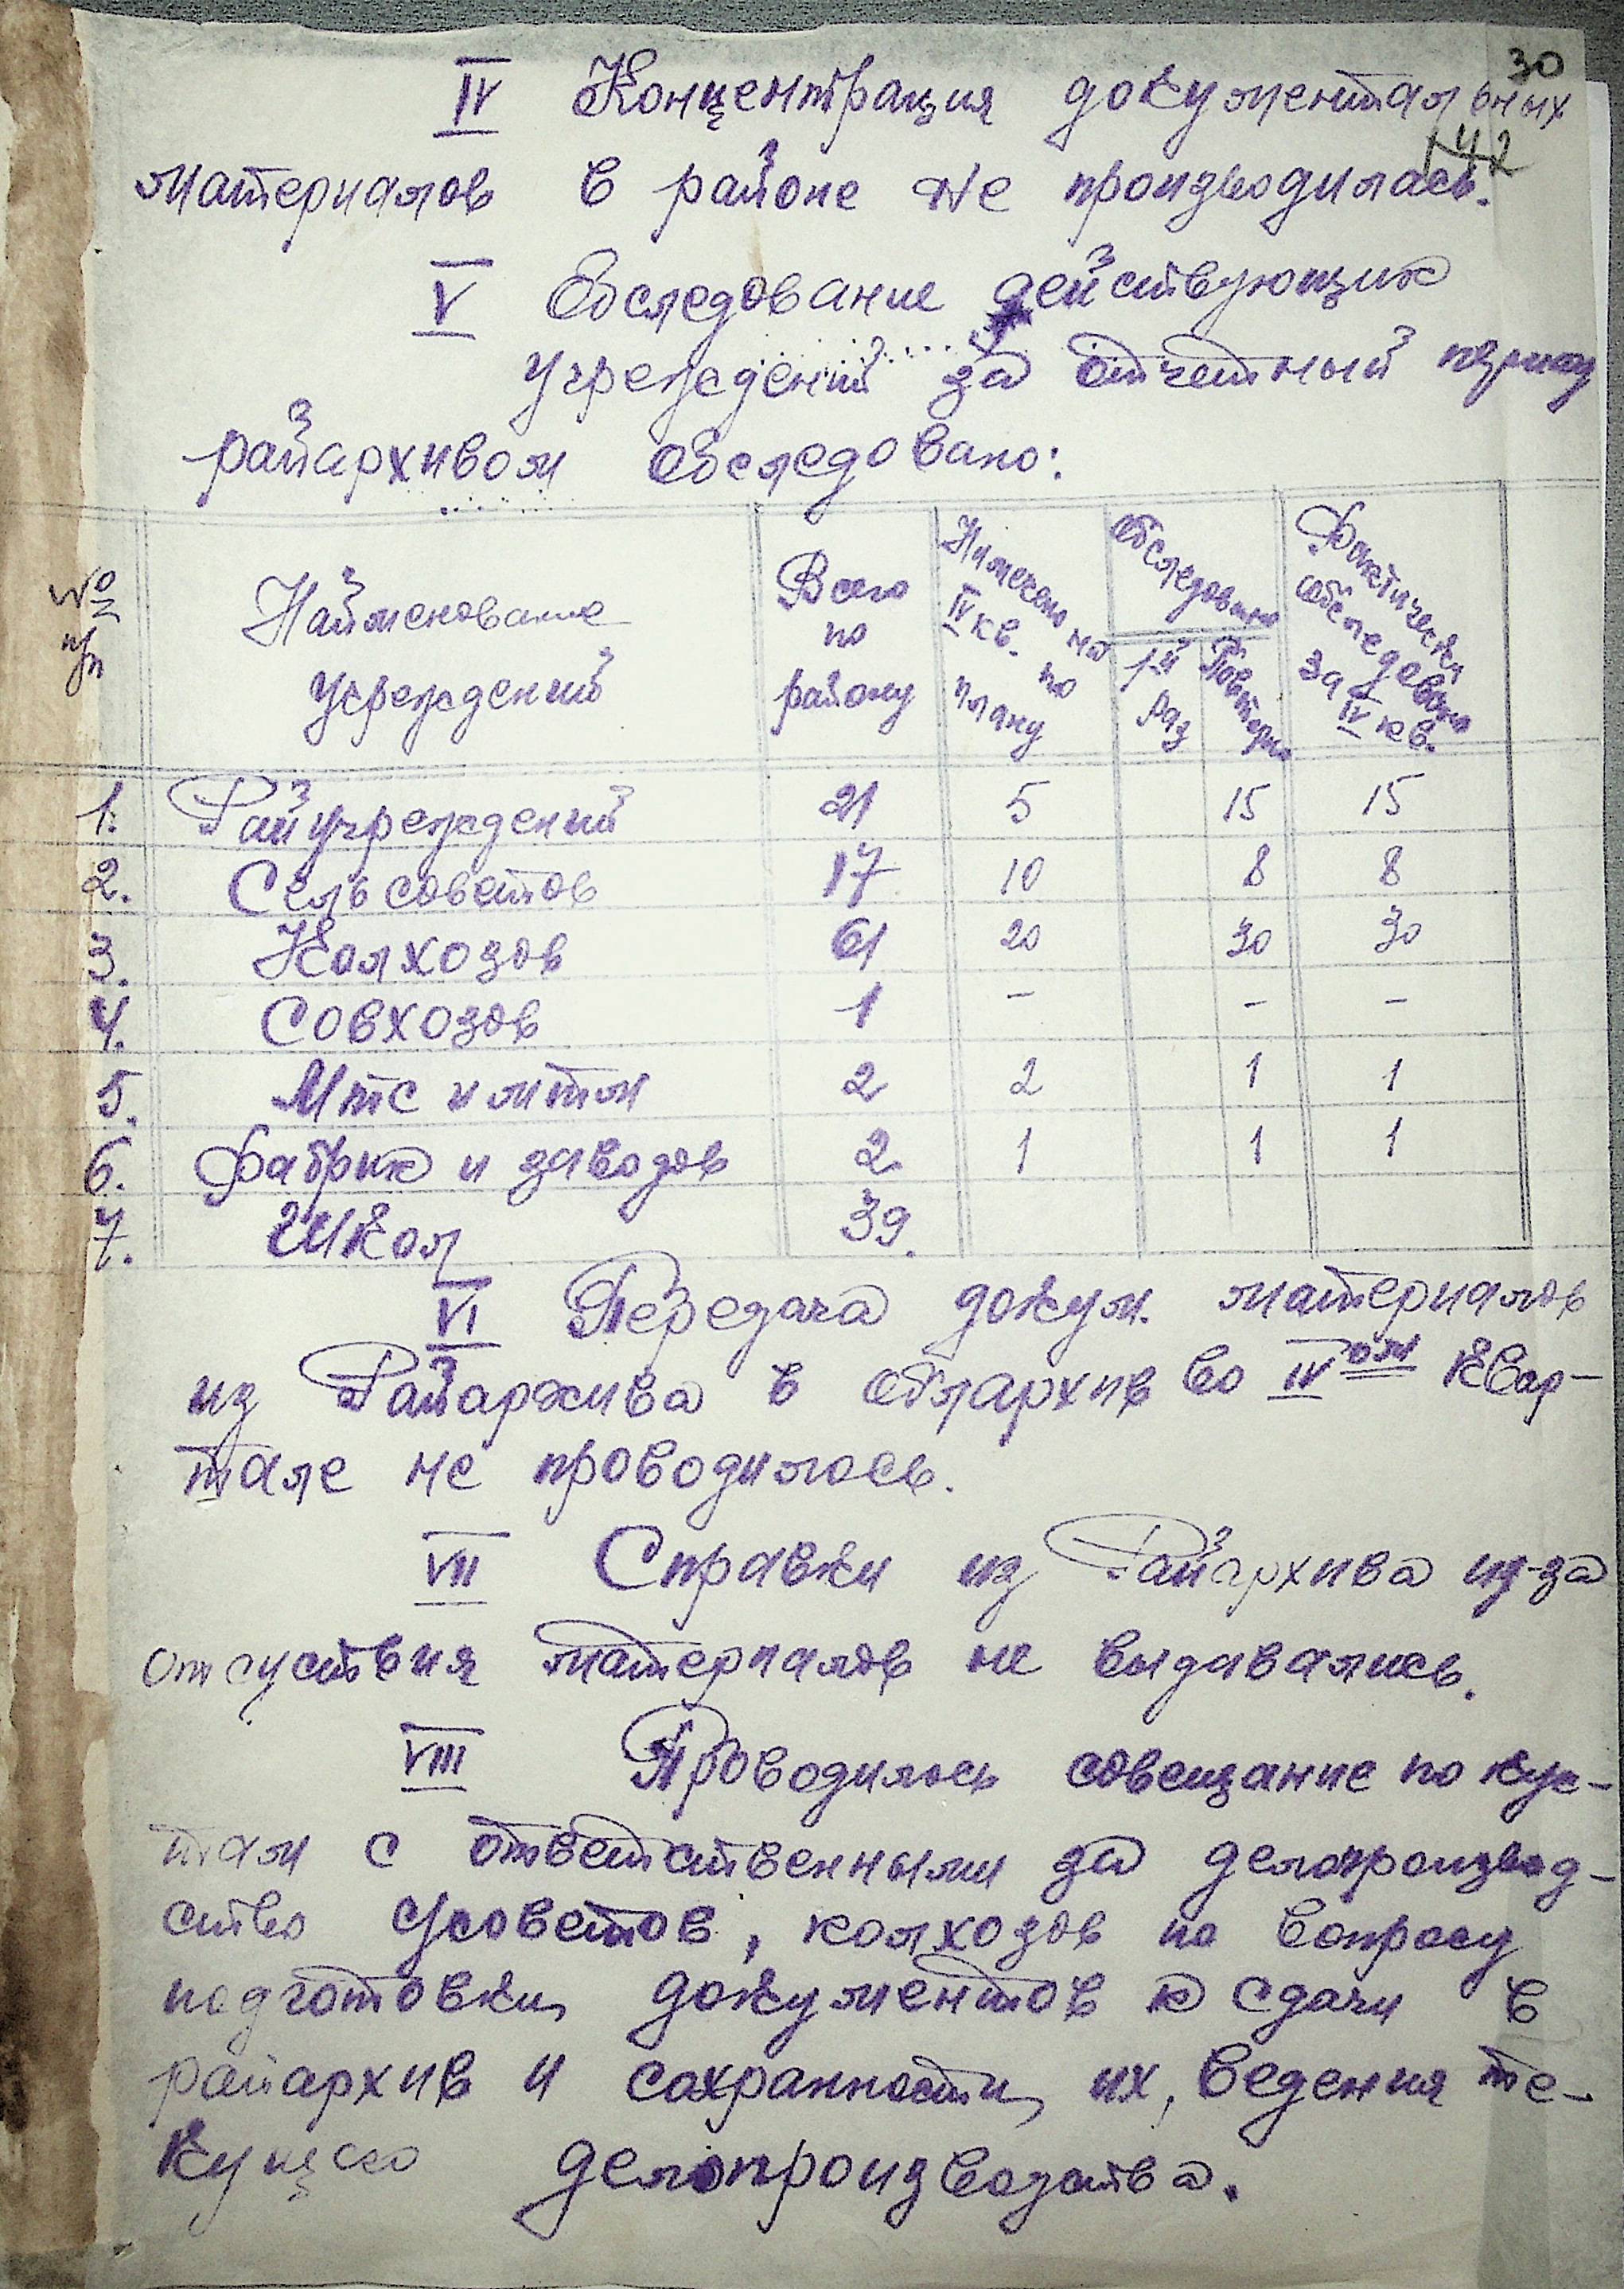 30
IV Концентрация документальных
142
материалов в районе не производилась.
V Обследование действующих
учреждений за отчетный период
райархивом обследовано:
№ п/п | Найменование учреждений | Всего по району | Намечено на IV кв. по плану | Обследовано | 1-й раз | Повторно | Фактически обследовано за IV кв.
1. Райучреждений 21 5 15 15
2. Сельсоветов 17 10 8 8
3. Колхозов 61 20 30 30
4. Совхозов 1 - - -
5. Мтс и мтм 2 2 1 1
6. Фабрик и заводов 2 1 1 1
7. Школ 39.
VI Передача докум. материалов
из Райархива в облархив во IV ом квар-
тале не проводилось.
VII Справки из Райархива из-за
отсуствия материалов не выдавались.
VIII Проводилось совещание по кус-
там с ответственными за делопроизвод-
ство с/советов, колхозов по вопросу
подготовки документов к сдачи в
райархив и сохранности их, ведения те-
кущего делопроизводства.